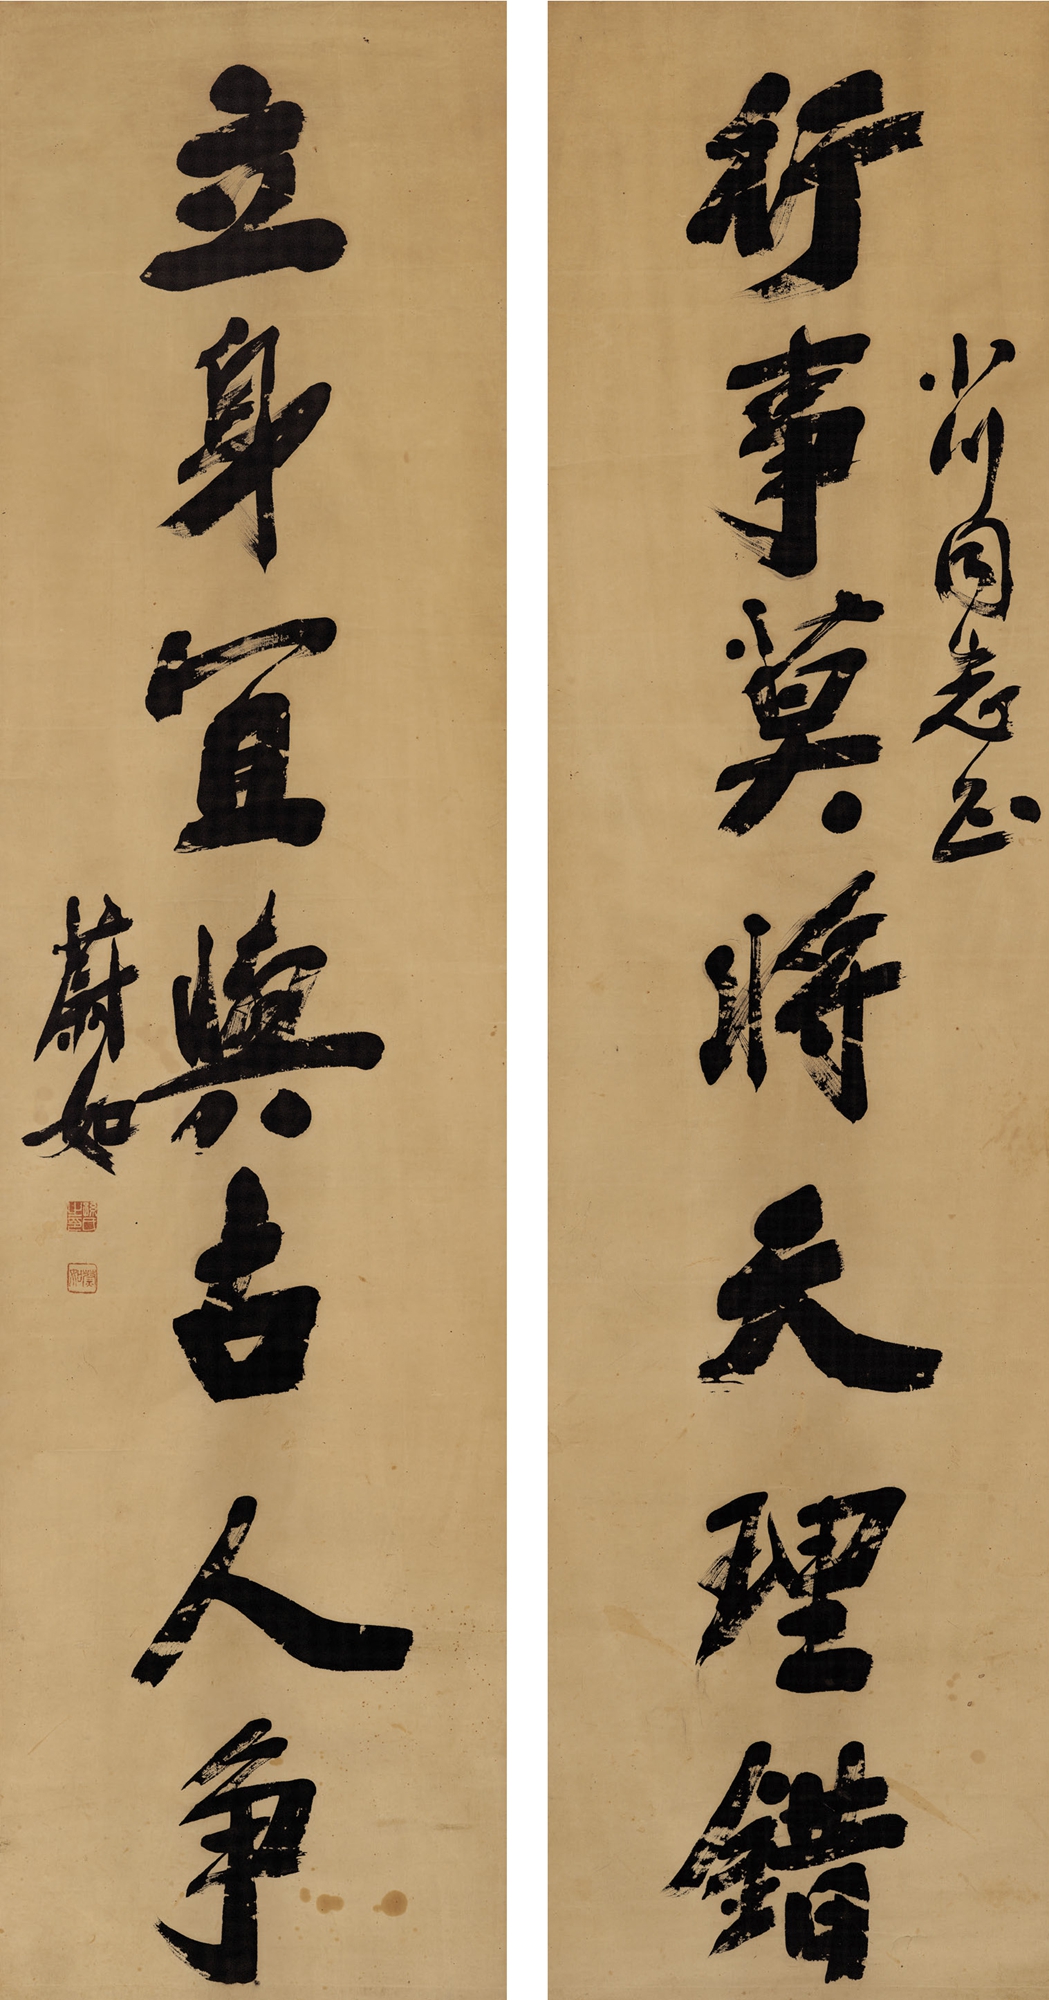 小川同志正
行事莫將天理錯
立身宜與古人爭
蔚如